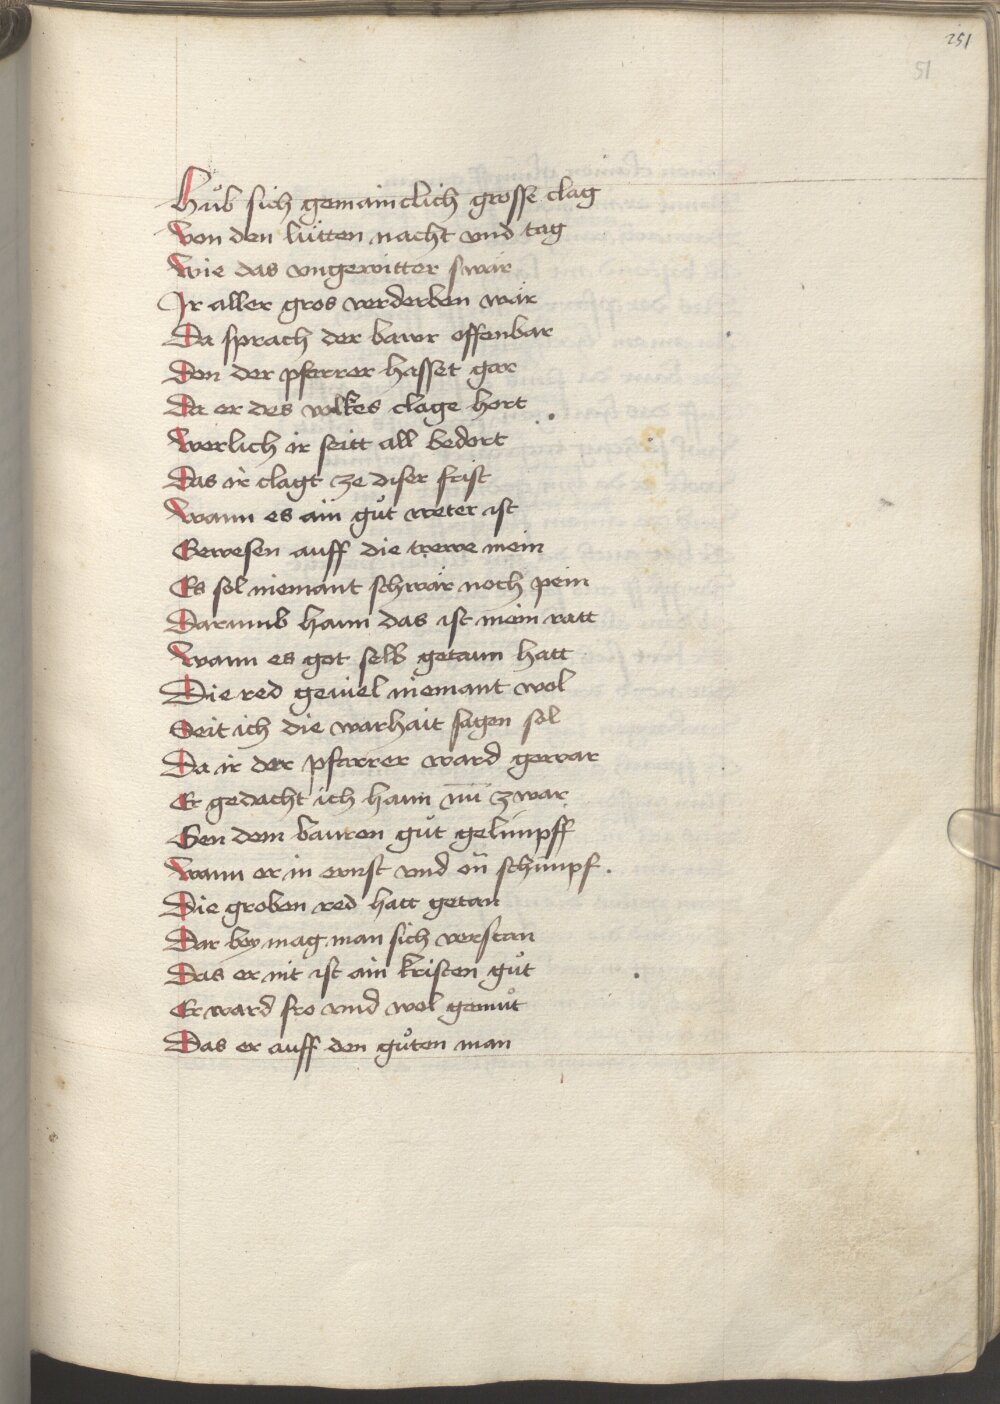 251
51
Hůb sich gemainclich grosse clag
Von den lütten nacht vnd tag
Wie das vngewitter swär
Ir aller gros verderben wär
Da sprach der bawr offenbar
Den der pfarrer hasset gar
Da er des volkes clage hort
Werlich ir seitt all bedort
Das ir clagt ze diser frist
Wann es ain gůt weter ist
Gewesen auff die trewe mein
Es sol niemant schwär noch pein
Darumb hann das ist mein ratt
Wann es got selb getann hatt
Die red geuiel niemant wol
Seit ich die warhait sagen sol
Da ir der pfarrer ward gewar
Er gedacht ich hann nū zwar
Gen dem bauren gůt gelimpff
Wann er in ernst vnd on schimpf.
Die groben red hatt getan
Dar bey mag man sich verstan
Das er nit ist ain kristen gůt
Er ward fro vnd wol gemůt
Das er auff den gůten man